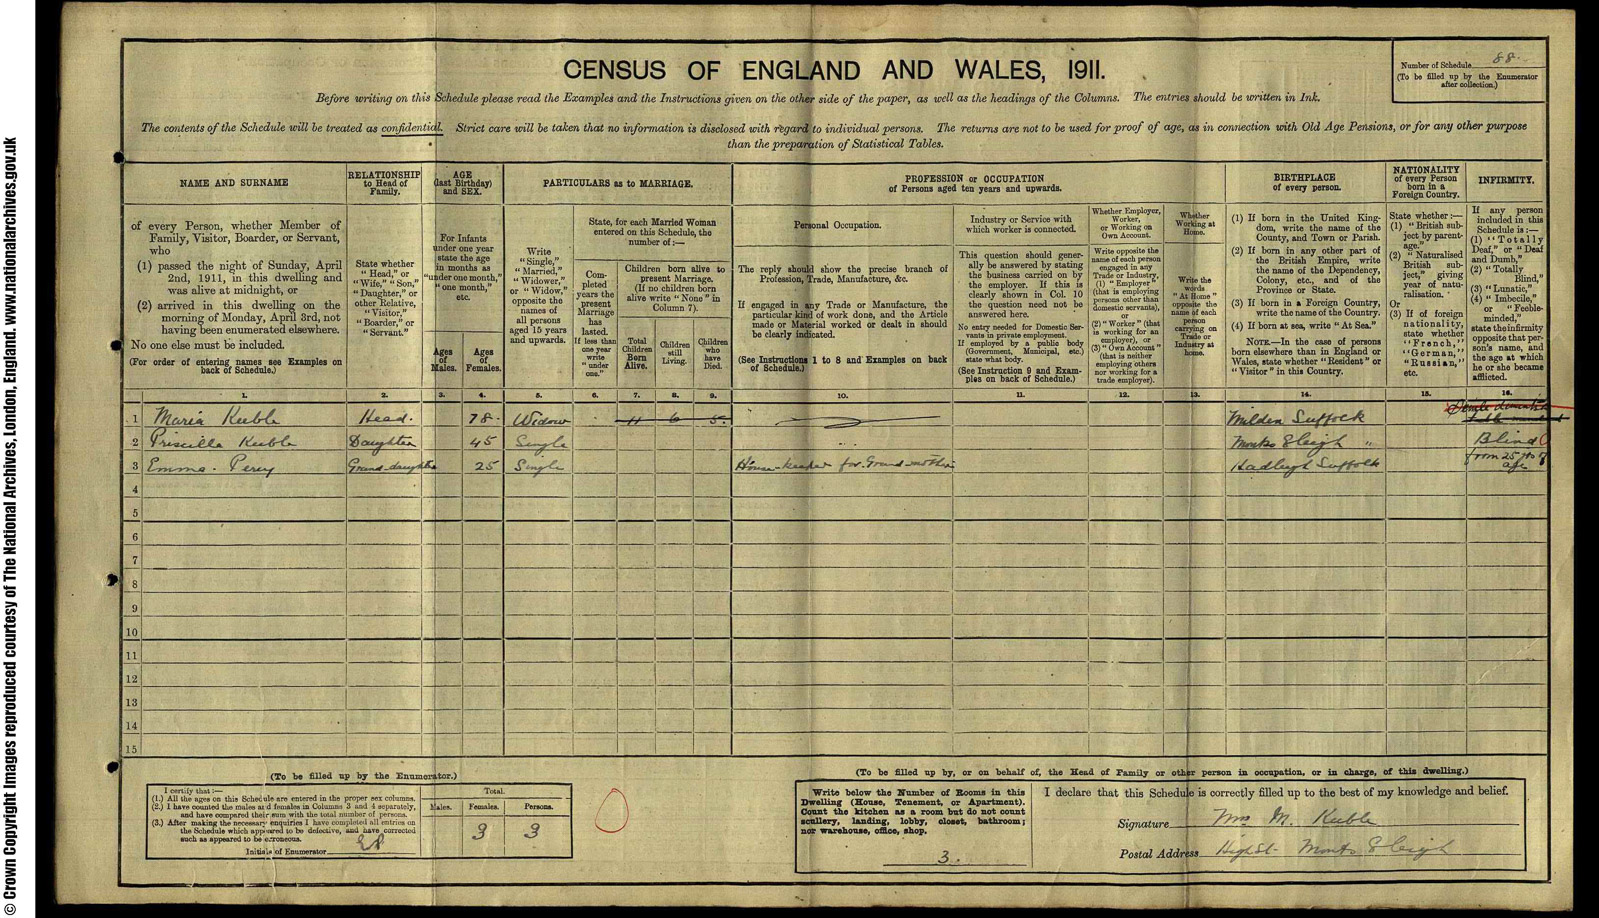 © Crown Copyright Images reproduced courtesy of The National Archives, London, England. www.nationalarchives.gov.uk
CENSUS OF ENGLAND AND WALES, 1911.
Number of Schedule 88.
(To be filled up by the Enumerator
after collection.)
Before writing on this Schedule please read the Examples and the Instructions given on the other side of the paper, as well as the headings of the Columns. The entries should be written in Ink.
The contents of the Schedule will be treated as confidential. Strict care will be taken that no information is disclosed with regard to individual persons. The returns are not to be used for proof of age, as in connection with Old Age Pensions, or for any other purpose
than the preparation of Statistical Tables.
NAME AND SURNAME
of every Person, whether Member of
Family, Visitor, Boarder, or Servant,
who
(1) passed the night of Sunday, April
2nd, 1911, in this dwelling and
was alive at midnight, or
(2) arrived in this dwelling on the
morning of Monday, April 3rd, not
having been enumerated elsewhere.
No one else must be included.
(For order of entering names see Examples on
back of Schedule.)
RELATIONSHIP
to Head of
Family.
State whether
"Head," or
"Wife," "Son,"
"Daughter," or
other Relative,
"Visitor,"
"Boarder," or
"Servant."
AGE
(last Birthday)
and SEX.
For Infants
under one year
state the age
in months as
"under one month,"
"one month,"
etc.
Ages
of
Males.
Ages
of
Females.
PARTICULARS as to MARRIAGE.
Write
"Single,"
"Married,"
"Widower,"
or "Widow,"
opposite the
names of
all persons
aged 15 years
and upwards.
State, for each Married Woman
entered on this Schedule, the
number of:—
Com-
pleted
years the
present
Marriage
has
lasted.
If less than
one year
write
"under
one."
Children born alive to
present Marriage.
(If no children born
alive write "None" in
Column 7).
Total
Children
Born
Alive.
Children
still
Living.
Children
who
have
Died.
PROFESSION or OCCUPATION
of Persons aged ten years and upwards.
Personal Occupation.
The reply should show the precise branch of
Profession, Trade, Manufacture, &c.
If engaged in any Trade or Manufacture, the
particular kind of work done, and the Article
made or Material worked or dealt in should
be clearly indicated.
(See Instructions 1 to 8 and Examples on back
of Schedule.)
Industry or Service with
which worker is connected.
This question should gener-
ally be answered by stating
the business carried on by
the employer. If this is
clearly shown in Col. 10
the question need not be
answered here.
No entry needed for Domestic Ser-
vants in private employment.
If employed by a public body
(Government, Municipal, etc.)
state what body.
(See Instruction 9 and Exam-
ples on back of Schedule.)
Whether Employer,
Worker,
or Working on
Own Account.
Write opposite the
name of each person
engaged in any
Trade or Industry,
(1) "Employer"
(that is employing
persons other than
domestic servants),
or
(2) "Worker" (that
is working for an
employer), or
(3) "Own Account"
(that is neither
employing others
nor working for a
trade employer).
Whether
Working at
Home.
Write the
words
"At Home"
opposite the
name of each
person
carrying on
Trade or
Industry at
home.
BIRTHPLACE
of every person.
(1) If born in the United King-
dom, write the name of the
County, and Town or Parish.
(2) If born in any other part of
the British Empire, write
the name of the Dependency,
Colony, etc., and of the
Province or State.
(3) If born in a Foreign Country,
write the name of the Country.
(4) If born at sea, write "At Sea."
NOTE.—In the case of persons
born elsewhere than in England or
Wales, state whether "Resident" or
"Visitor" in this Country.
NATIONALITY
of every Person
born in a
Foreign Country.
State whether:—
(1) "British sub-
ject by parent-
age."
(2) "Naturalised
British sub-
ject," giving
year of natu-
ralisation.
Or
(3) If of foreign
nationality,
state whether
"French,"
"German,"
"Russian,"
etc.
INFIRMITY.
If any person
included in this
Schedule is:—
(1) "Totally
Deaf," or "Deaf
and Dumb,"
(2) "Totally
Blind,"
(3) "Lunatic,"
(4) "Imbecile,"
or "Feeble-
minded,"
state the infirmity
opposite that per-
son's name, and
the age at which
he or she became
afflicted.
1. 2. 3. 4. 5. 6. 7. 8. 9. 10. 11. 12. 13. 14. 15. 16.
1 Maria Keeble Head. 78. Widow 11 6 5. Milden Suffolk Senile
2 Priscilla Keeble Daughter 45 Single Monks Eleigh " Blind
3 Emma Percy Grand-daughter 25 Single House-keeper for Grand-mother Hadleigh Suffolk from 25 yrs of
age
4
5
6
7
8
9
10
11
12
13
14
15
(To be filled up by the Enumerator.)
I certify that:—
(1.) All the ages on this Schedule are entered in the proper sex columns.
(2.) I have counted the males and females in Columns 3 and 4 separately,
and have compared their sum with the total number of persons.
(3.) After making the necessary enquiries I have completed all entries on
the Schedule which appeared to be defective, and have corrected
such as appeared to be erroneous.
Initials of Enumerator
Total.
Males. Females. Persons.
3 3
(To be filled up by, or on behalf of, the Head of Family or other person in occupation, or in charge, of this dwelling.)
Write below the Number of Rooms in this
Dwelling (House, Tenement, or Apartment).
Count the kitchen as a room but do not count
scullery, landing, lobby, closet, bathroom;
nor warehouse, office, shop.
3.
I declare that this Schedule is correctly filled up to the best of my knowledge and belief.
Signature Mrs M. Keeble
Postal Address High St- Monks Eleigh